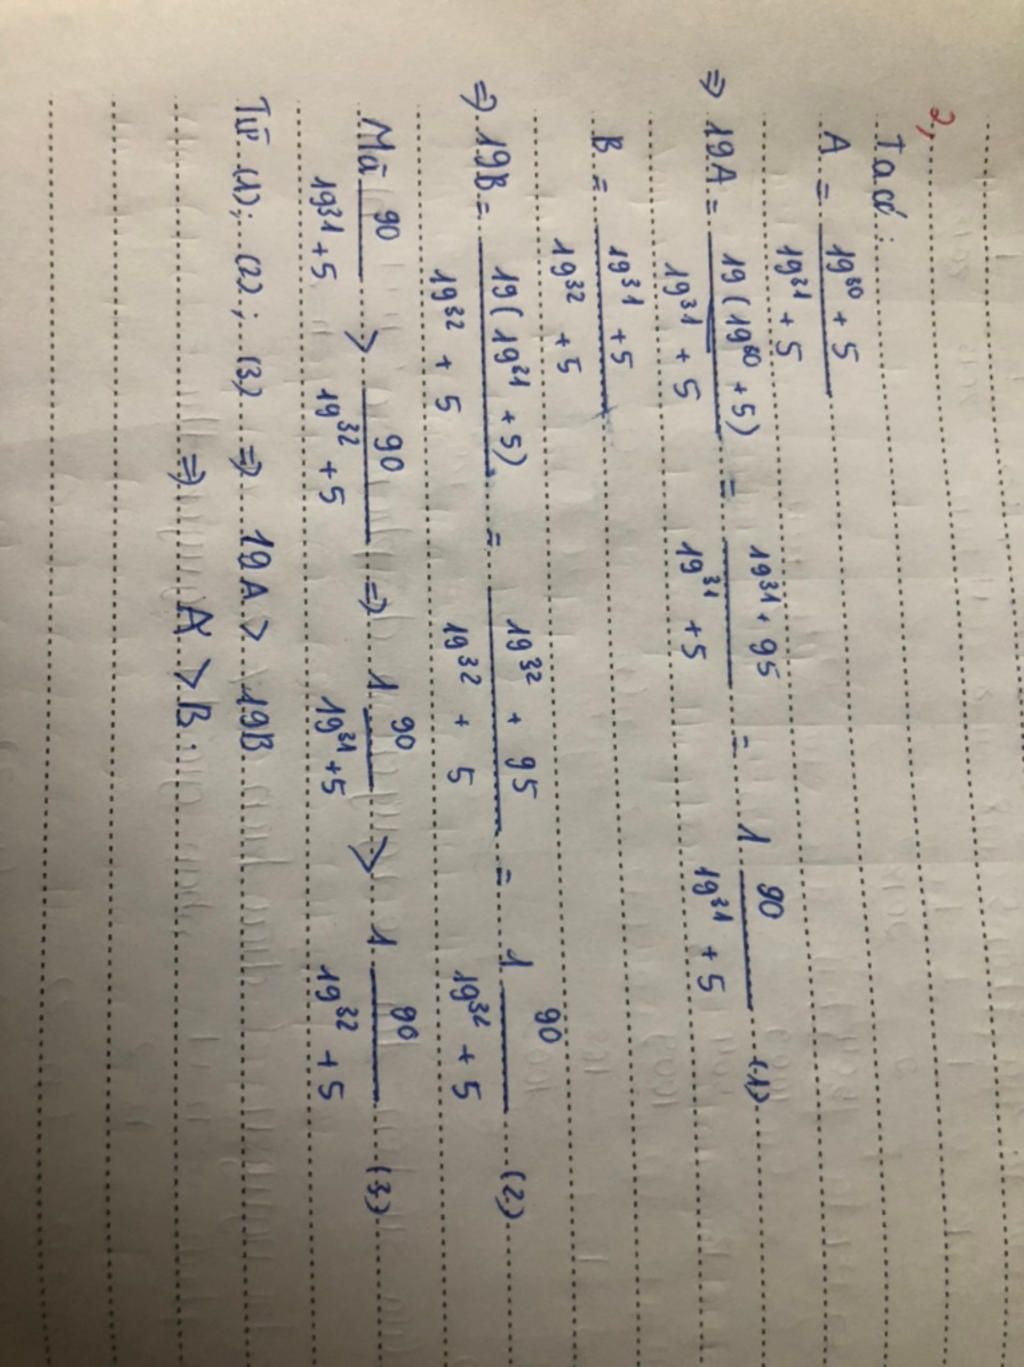 2,
Ta có:
A = \frac{19^{30} + 5}{19^{31} + 5}
⇒ 19A = \frac{19(19^{30} + 5)}{19^{31} + 5} = \frac{19^{31} + 95}{19^{31} + 5} = 1\frac{90}{19^{31} + 5} (1)
B = \frac{19^{31} + 5}{19^{32} + 5}
⇒ 19B = \frac{19(19^{31} + 5)}{19^{32} + 5} = \frac{19^{32} + 95}{19^{32} + 5} = 1\frac{90}{19^{32} + 5} (2)
Mà \frac{90}{19^{31} + 5} > \frac{90}{19^{32} + 5} ⇒ 1\frac{90}{19^{31} + 5} > 1\frac{90}{19^{32} + 5} (3)
Từ (1); (2); (3) ⇒ 19A > 19B
⇒ A > B.